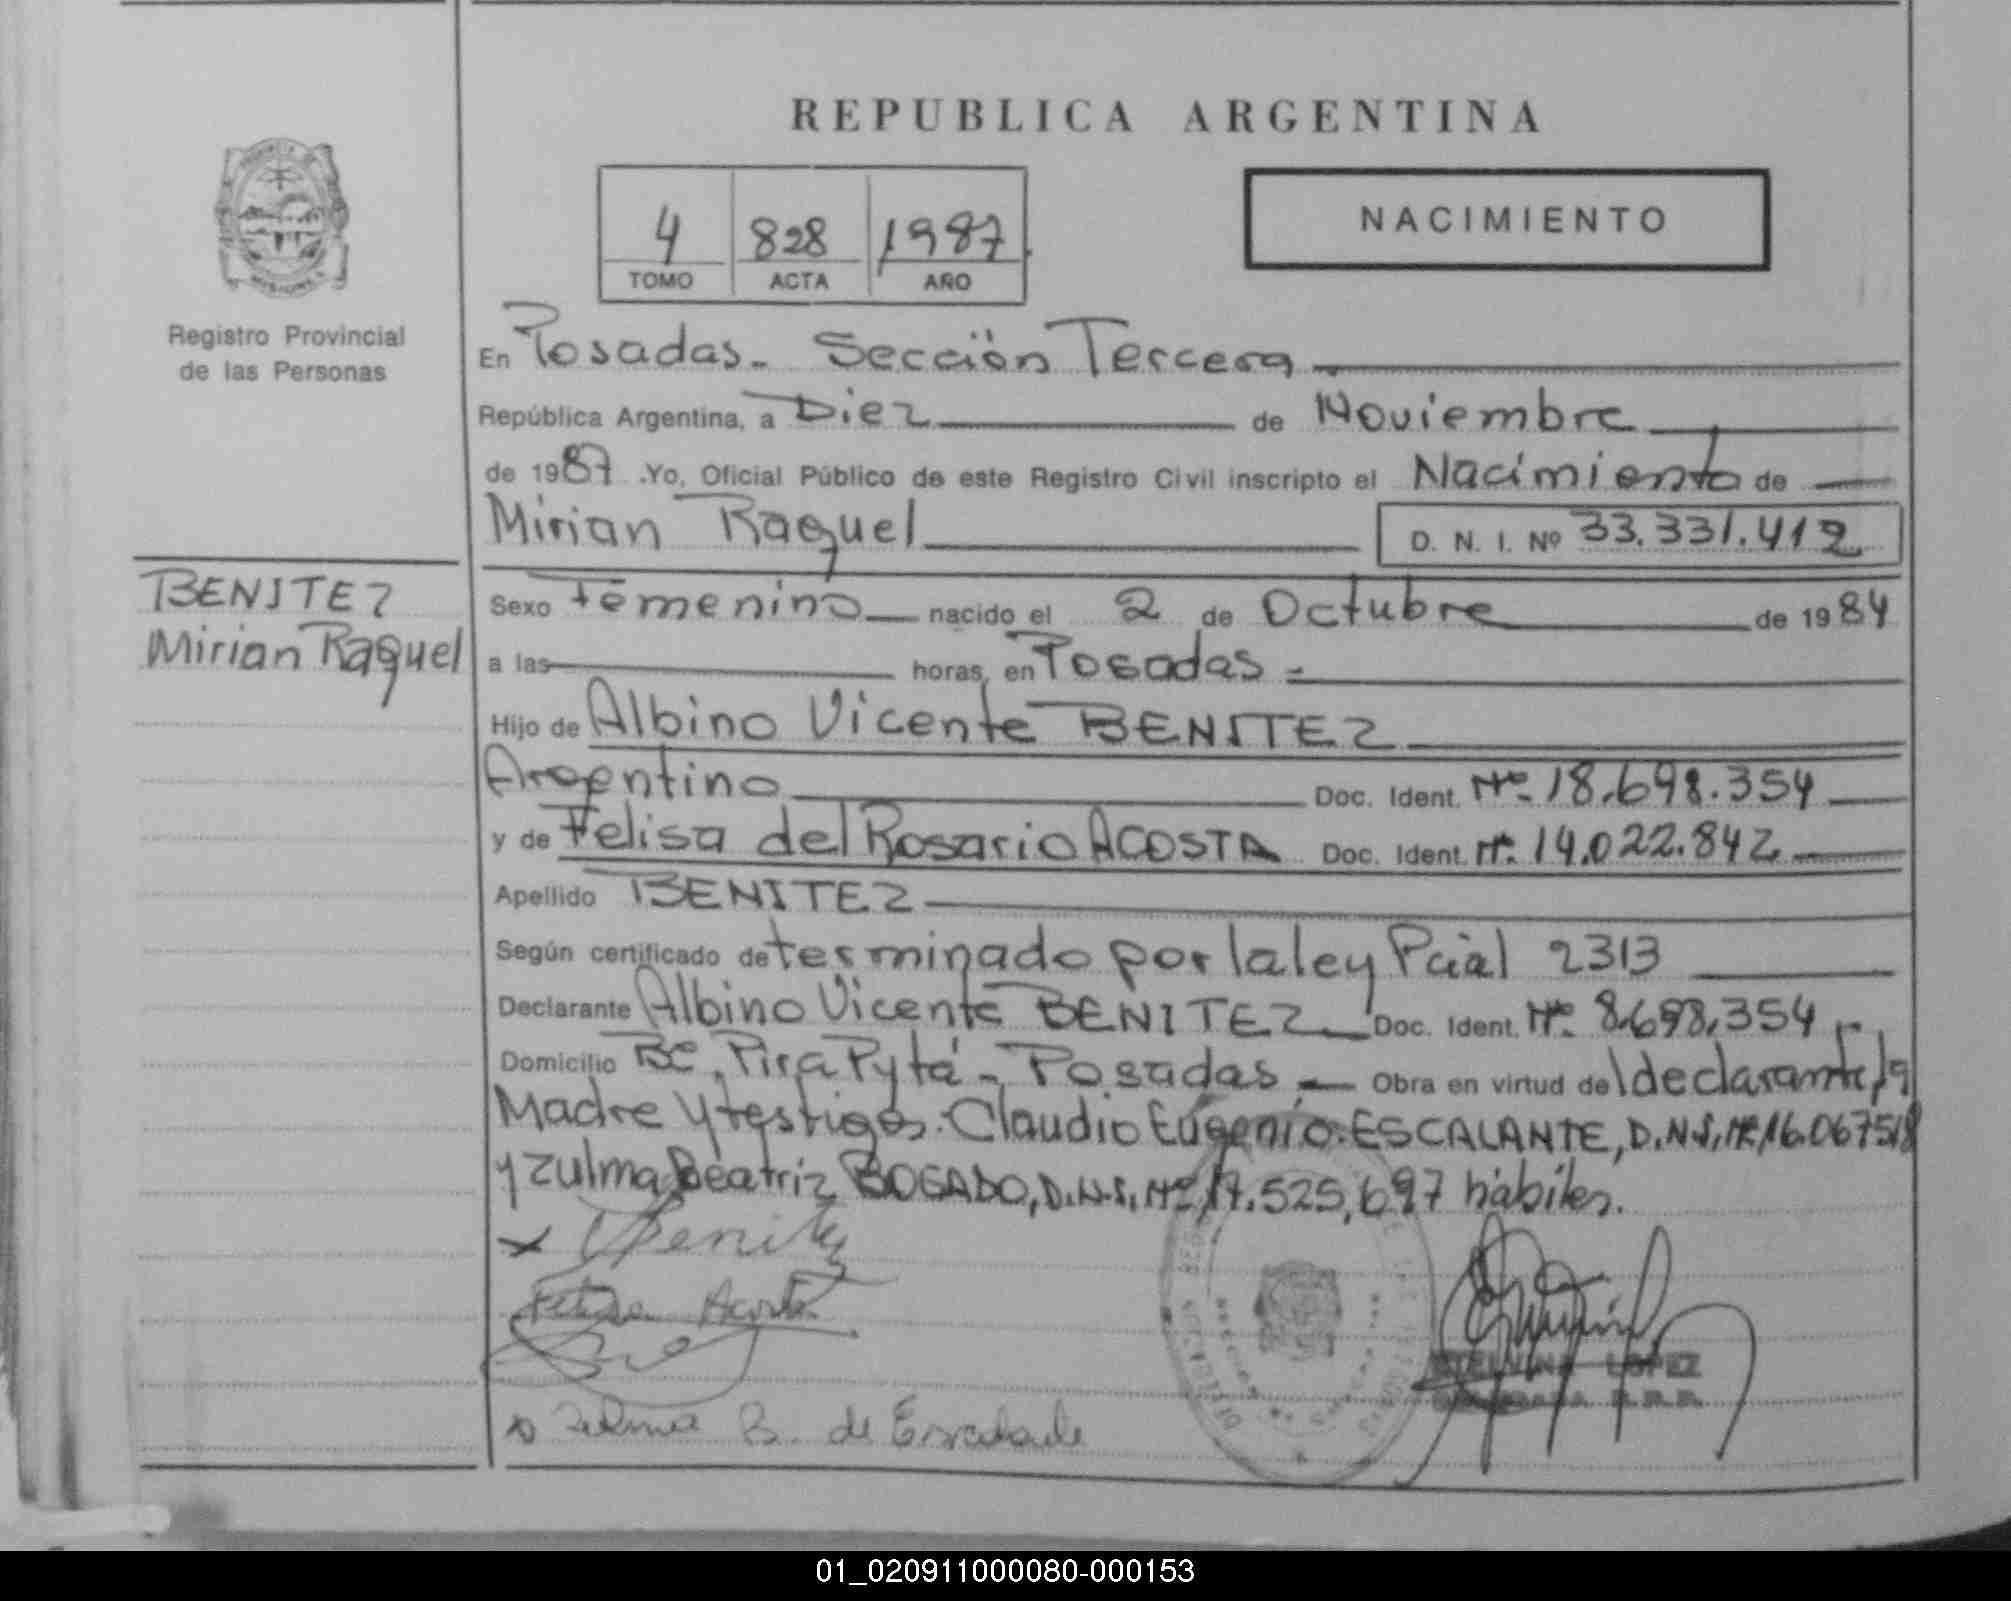 REPUBLICA ARGENTINA
4 828 1987
TOMO ACTA AÑO
NACIMIENTO
Registro Provincial
de las Personas
En Posadas. Sección Tercera
República Argentina, a Diez de Noviembre
de 1987 .Yo, Oficial Público de este Registro Civil inscripto el Nacimiento de
Mirian Raquel D. N. I. Nº 33.331.412
BENITEZ
Mirian Raquel
Sexo Femenino nacido el 2 de Octubre de 1984
a las horas, en Posadas.
Hijo de Albino Vicente BENITEZ
Argentino Doc. Ident. Nº 18.698.354
y de Felisa del Rosario ACOSTA Doc. Ident. Nº 14.022.842
Apellido BENITEZ
Según certificado determinado por la ley Pcial 2313
Declarante Albino Vicente BENITEZ Doc. Ident. Nº 8.698.354
Domicilio Bº. Pira Pytá - Posadas Obra en virtud del declarante, la
Madre y testigos. Claudio Eugenio ESCALANTE, D.N.I. Nº 16.067518
y Zulma Beatriz BOGADO, D.N.I. Nº 17.525,697 hábiles.
Benitez
Felisa Acosta
Zulma B. de Escalante
LOPEZ
01_020911000080-000153